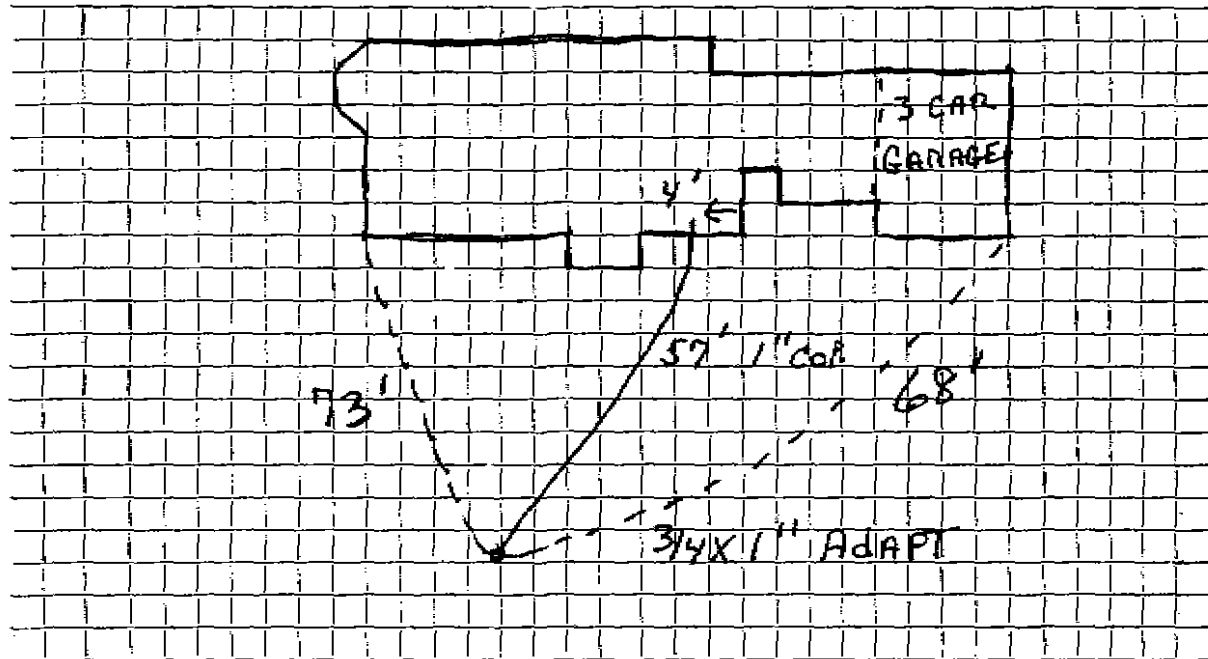 3 CAR
GARAGE
4'
57' 1" COP
73'
68'
3/4 X 1" AdAPT